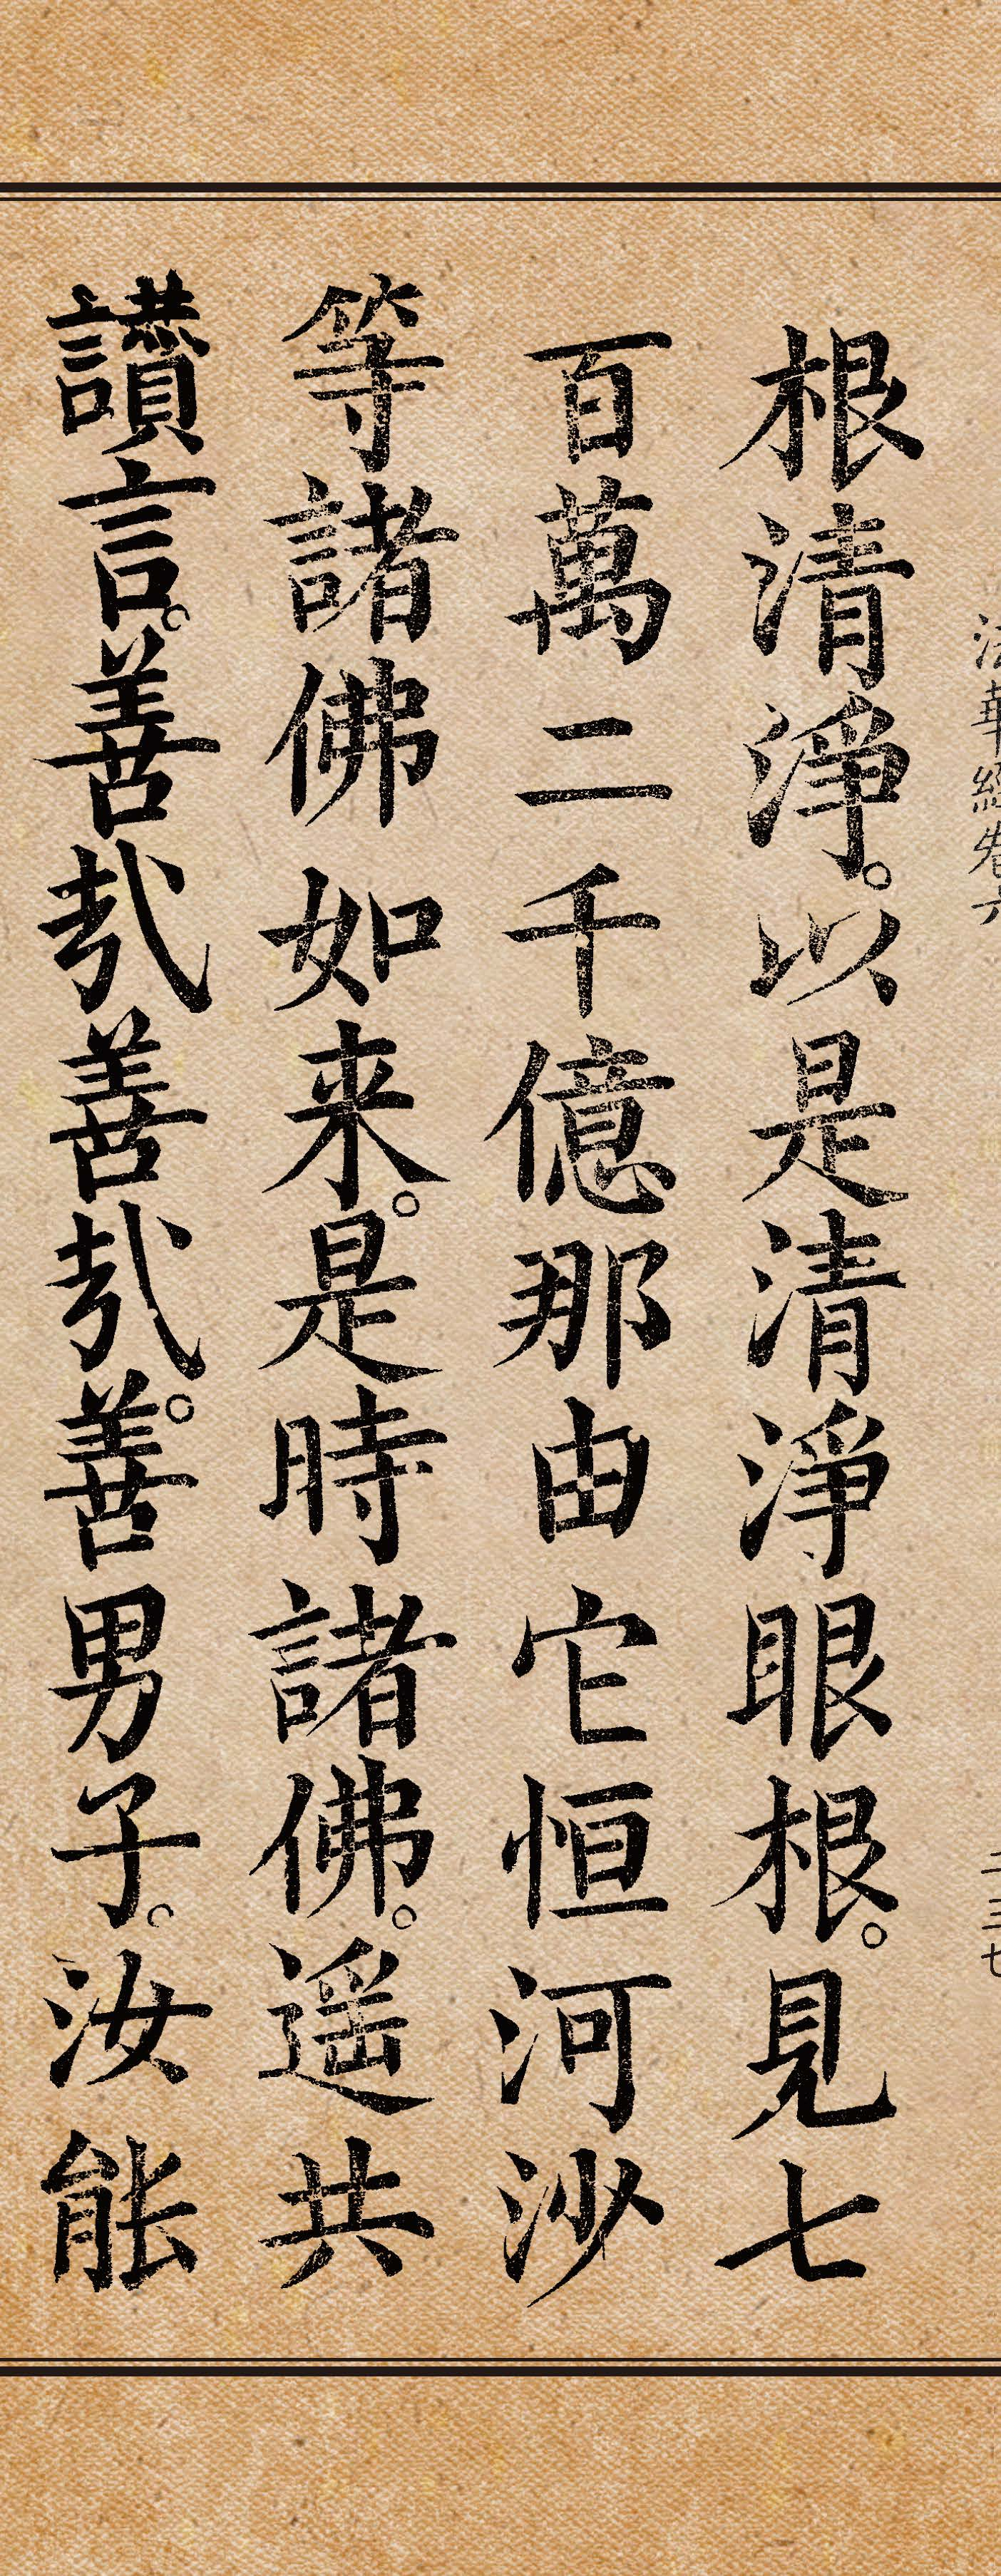 法華經卷六 二三七
根清淨。以是清淨眼根。見七
百萬二千億那由它恒河沙
等諸佛如来。是時諸佛。遥共
讃言。善哉善哉。善男子。汝能